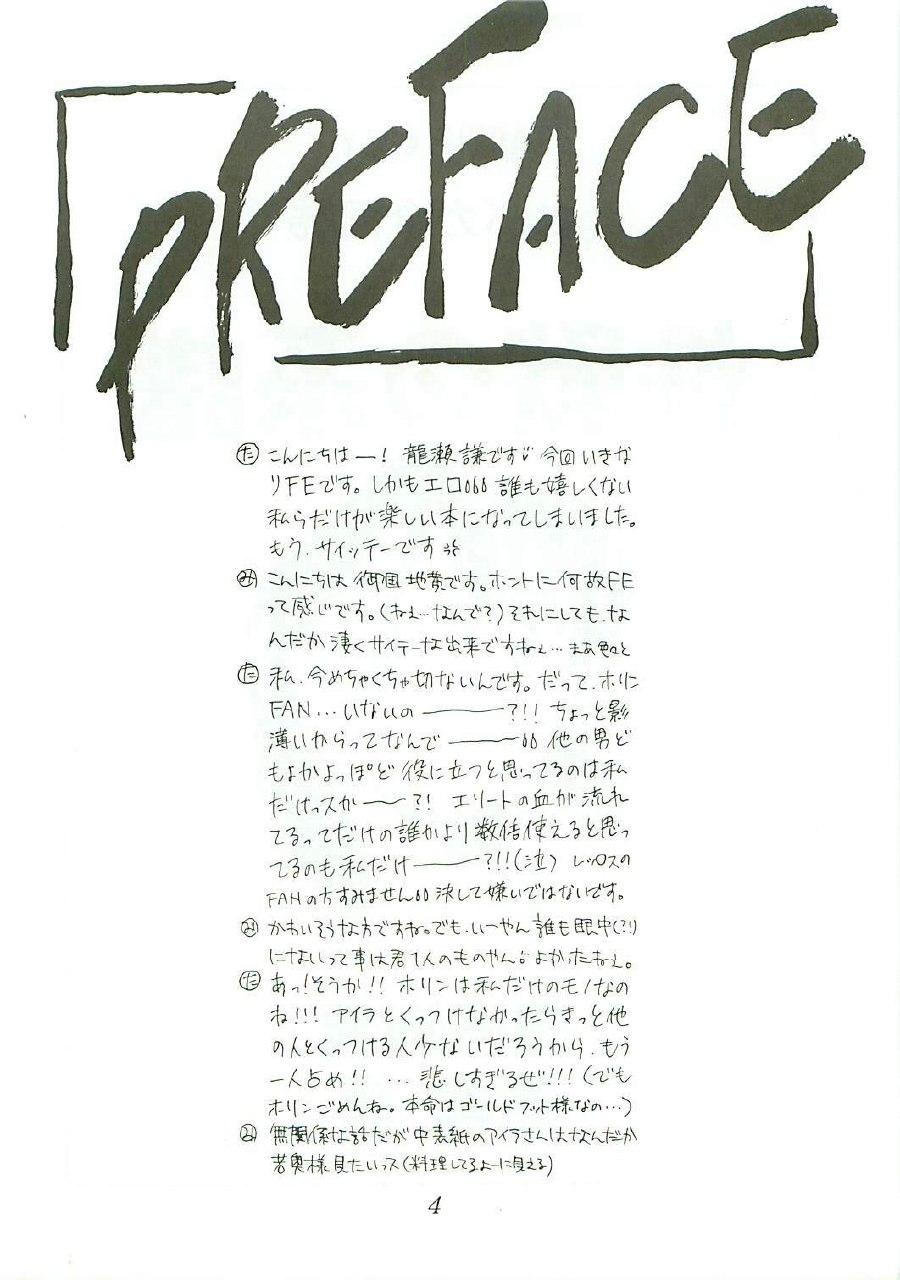 「PREFACE」
(た) こんにちはー! 龍瀬謙です♡ 今回いきな
りFEです。しかもエロ。。。誰も嬉しくない
私らだけが楽しい本になってしまいました。
もう、サイッテーです
(み) こんにちは 御国です。ホントに何故FE
って感じです。(ねぇ…なんで?)それにしても、な
んだか凄くサイテーな出来ですねぇ… まあ色々と
(た) 私、今めちゃくちゃ切ないんです。だって、ホリン
FAN…いないの———?!! ちょっと影
薄いからってなんで———。。他の男ど
もよかよっぽど役に立つと思ってるのは私
だけっスか——?! エリートの血が流れ
てるってだけの誰かより数倍使えると思っ
てるのも私だけ———?!!(泣) レックスの
FANの方すみません。。決して嫌いではないです。
(み) かわいそうな方ですね。でも、いーやん誰も眼中(?!)
にないって事は君1人のものやん♪よかったねぇ。
(た) あっ!そうか!! ホリンは私だけのモノなの
ね!!! アイラとくっつけなかったらきっと他
の人とくっつける人少ないだろうから、もう
一人占め!! …悲しすぎるぜ!!!(でも
ホリンごめんね。本命はゴールドフット様なの…)
(み) 無関係な話だが中表紙のアイラさんはなんだか
若奥様見たいっス(料理してるよーに見える)
4